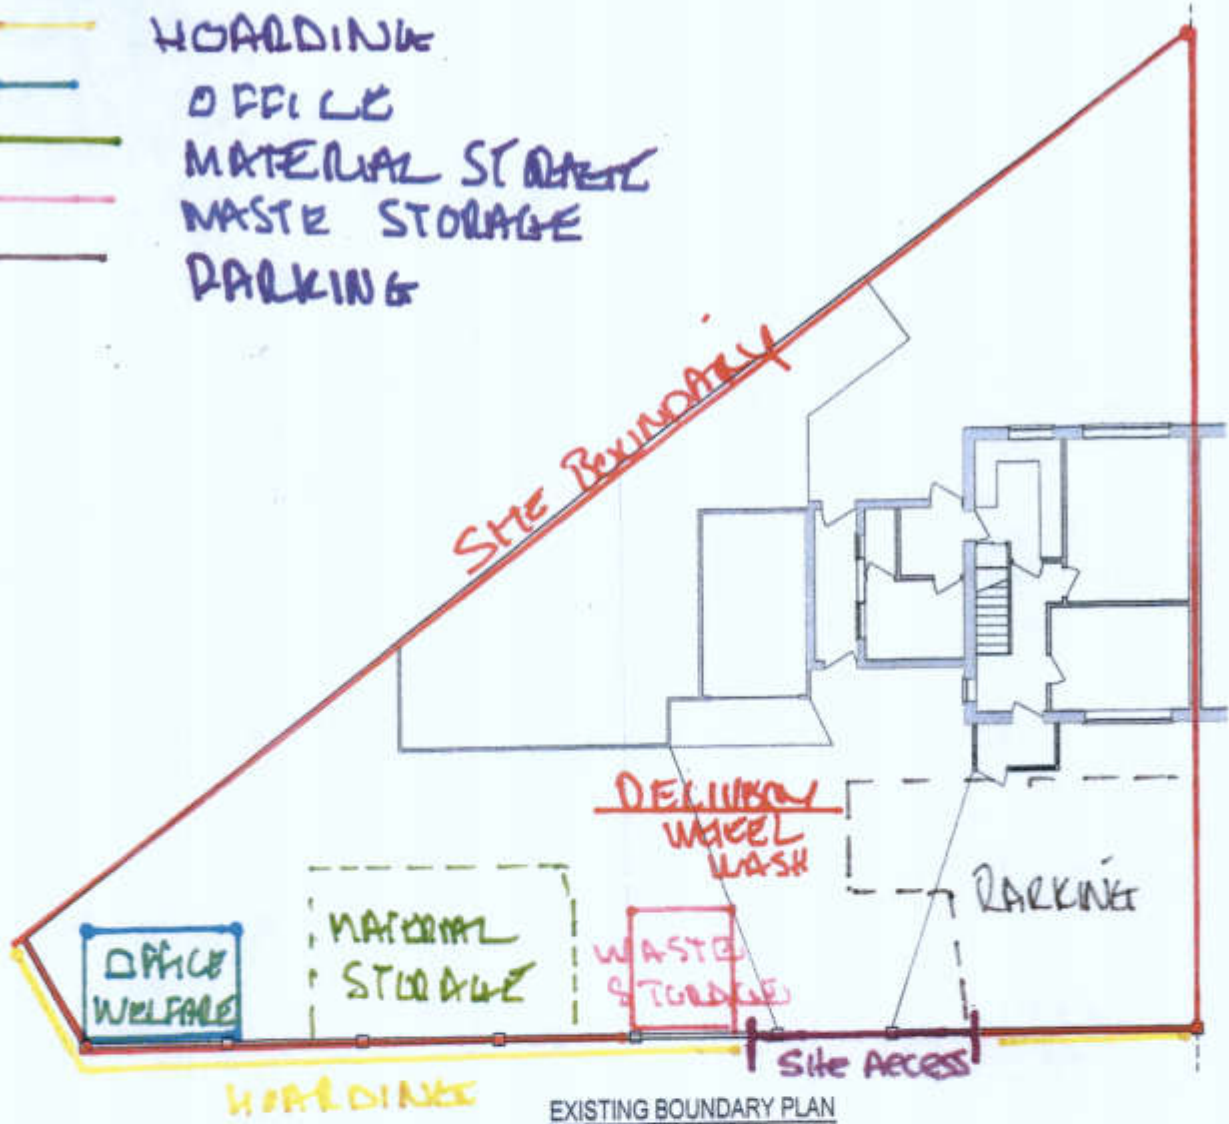 HOARDING
OFFICE
MATERIAL STORAGE
WASTE STORAGE
PARKING
SITE BOUNDARY
DELIVERY
WHEEL
WASH
PARKING
MATERIAL
STORAGE
WASTE
STORAGE
OFFICE
WELFARE
SITE ACCESS
HOARDING
EXISTING BOUNDARY PLAN